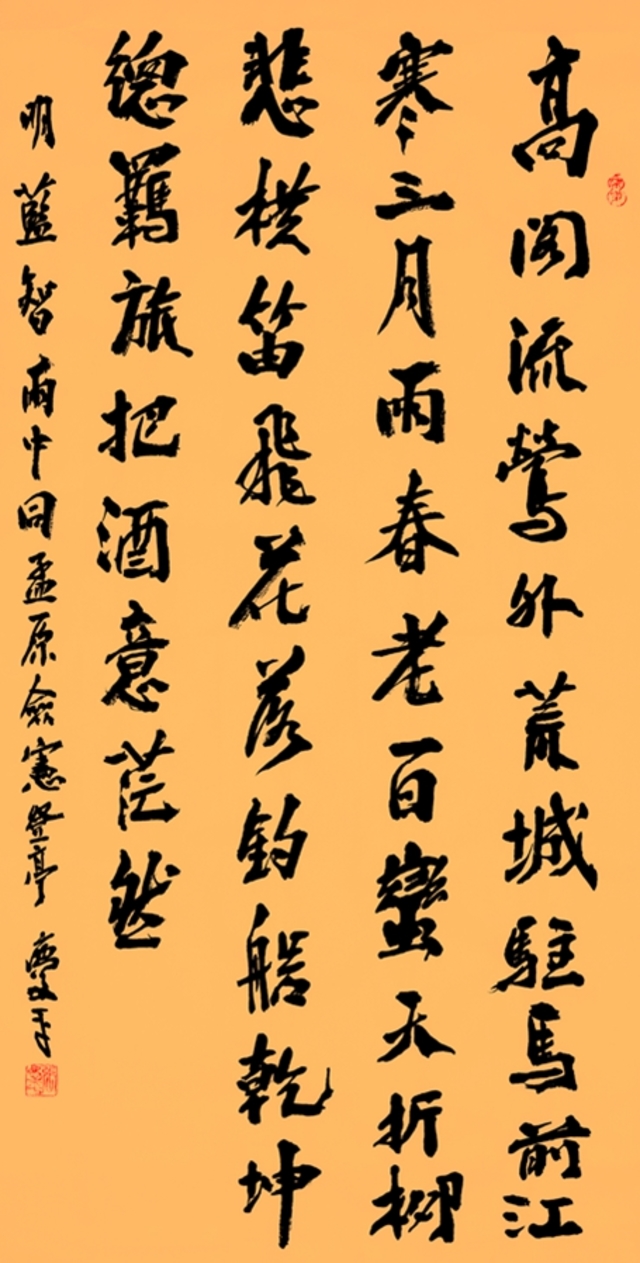 高閣流鶯外荒城駐馬前江
寒三月雨春老百蠻天折柳
悲橫笛飛花落釣船乾坤
總羈旅把酒意茫然
明藍智雨中同孟原僉憲登亭